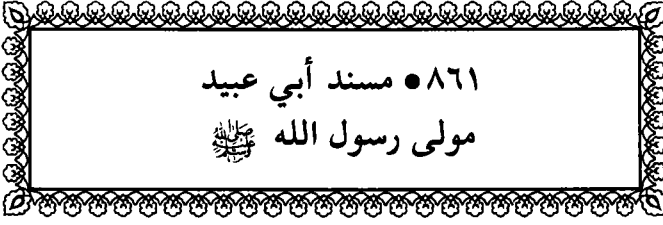 ٨٦١ ● مسند أبي عبيد
مولى رسول الله ﷺ